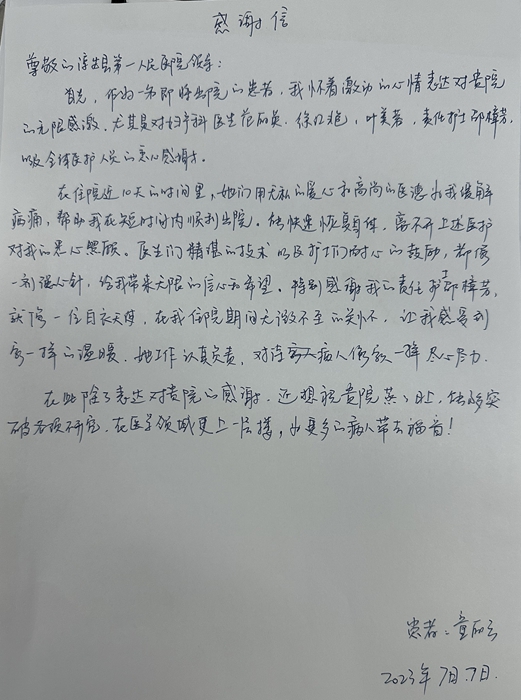 感谢信
尊敬的淳安县第一人民医院领导：
首先，作为一名即将出院的患者，我怀着激动的心情表达对贵院
的无限感激，尤其是对妇产科医生范丽英、徐，叶美若，责任护士邵樟芳，
以及全体医护人员的衷心感谢！
在住院近10天的时间里，她们用无私的爱心和高尚的医德为我缓解
病痛，帮助我在短时间内顺利出院。能快速恢复身体，离不开上述医护
对我的悉心照顾。医生们精湛的技术以及护士们耐心的鼓励，都像
一剂强心针，给我带来无限的信心和希望。特别感谢我的责任护士邵樟芳，
就像一位白衣天使，在我住院期间无微不至的关怀，让我感受到
家一样的温暖，她工作认真负责，对待病人像家人一样尽心尽力.
在此除了表达对贵院的感谢，还想祝贵院蒸蒸日上，能够突
破各项研究，在医学领域更上一层楼，为更多的病人带去福音！
患者：童丽云
2023年7月7日.